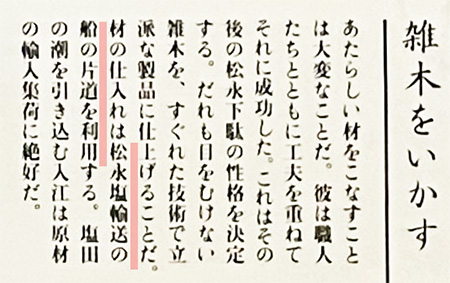 雑木をいかす
あたらしい材をこなすこと
は大変なことだ。彼は職人
たちとともに工夫を重ねて
それに成功した。これはその
後の松永下駄の性格を決定
する。だれも目をむけない
雑木を、すぐれた技術で立
派な製品に仕上げることだ。
材の仕入れは松永塩輸送の
船の片道を利用する。塩田
の潮を引き込む入江は原材
の輸入集荷に絶好だ。